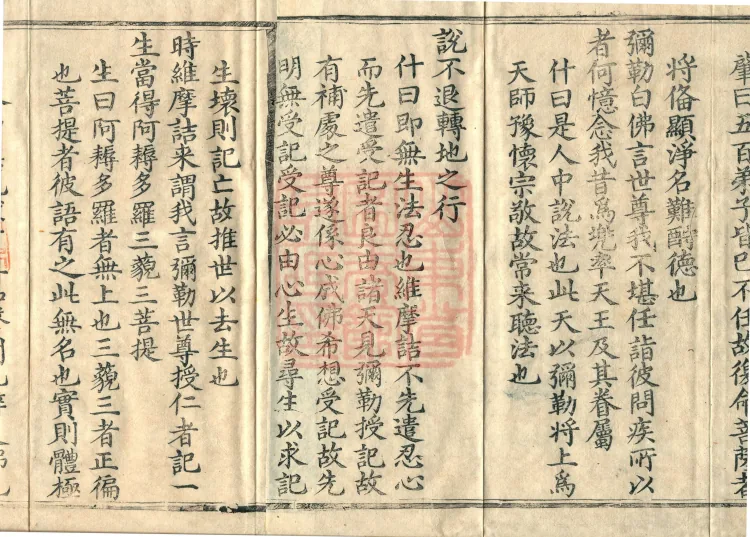 肇曰五百弟子皆已不任故復命菩薩者
將俻顯淨名難酧德也
彌勒白佛言世尊我不堪任詣彼問疾所以
者何憶念我昔爲兜率天王及其眷屬
什曰是人中說法也此天以彌勒將上爲
天師豫懷宗敬故常来聽法也
說不退轉地之行
什曰即無生法忍也維摩詰不先遣忍心
而先遣受記者良由諸天見彌勒授記故
有補處之尊遂係心成佛希想受記故先
明無受記受記必由心生故尋生以求記
生壞則記亡故推世以去生也
時維摩詰来謂我言彌勒世尊授仁者記一
生當得阿耨多羅三藐三菩提
生曰阿耨多羅者無上也三藐三者正徧
也菩提者彼語有之此無名也實則體極